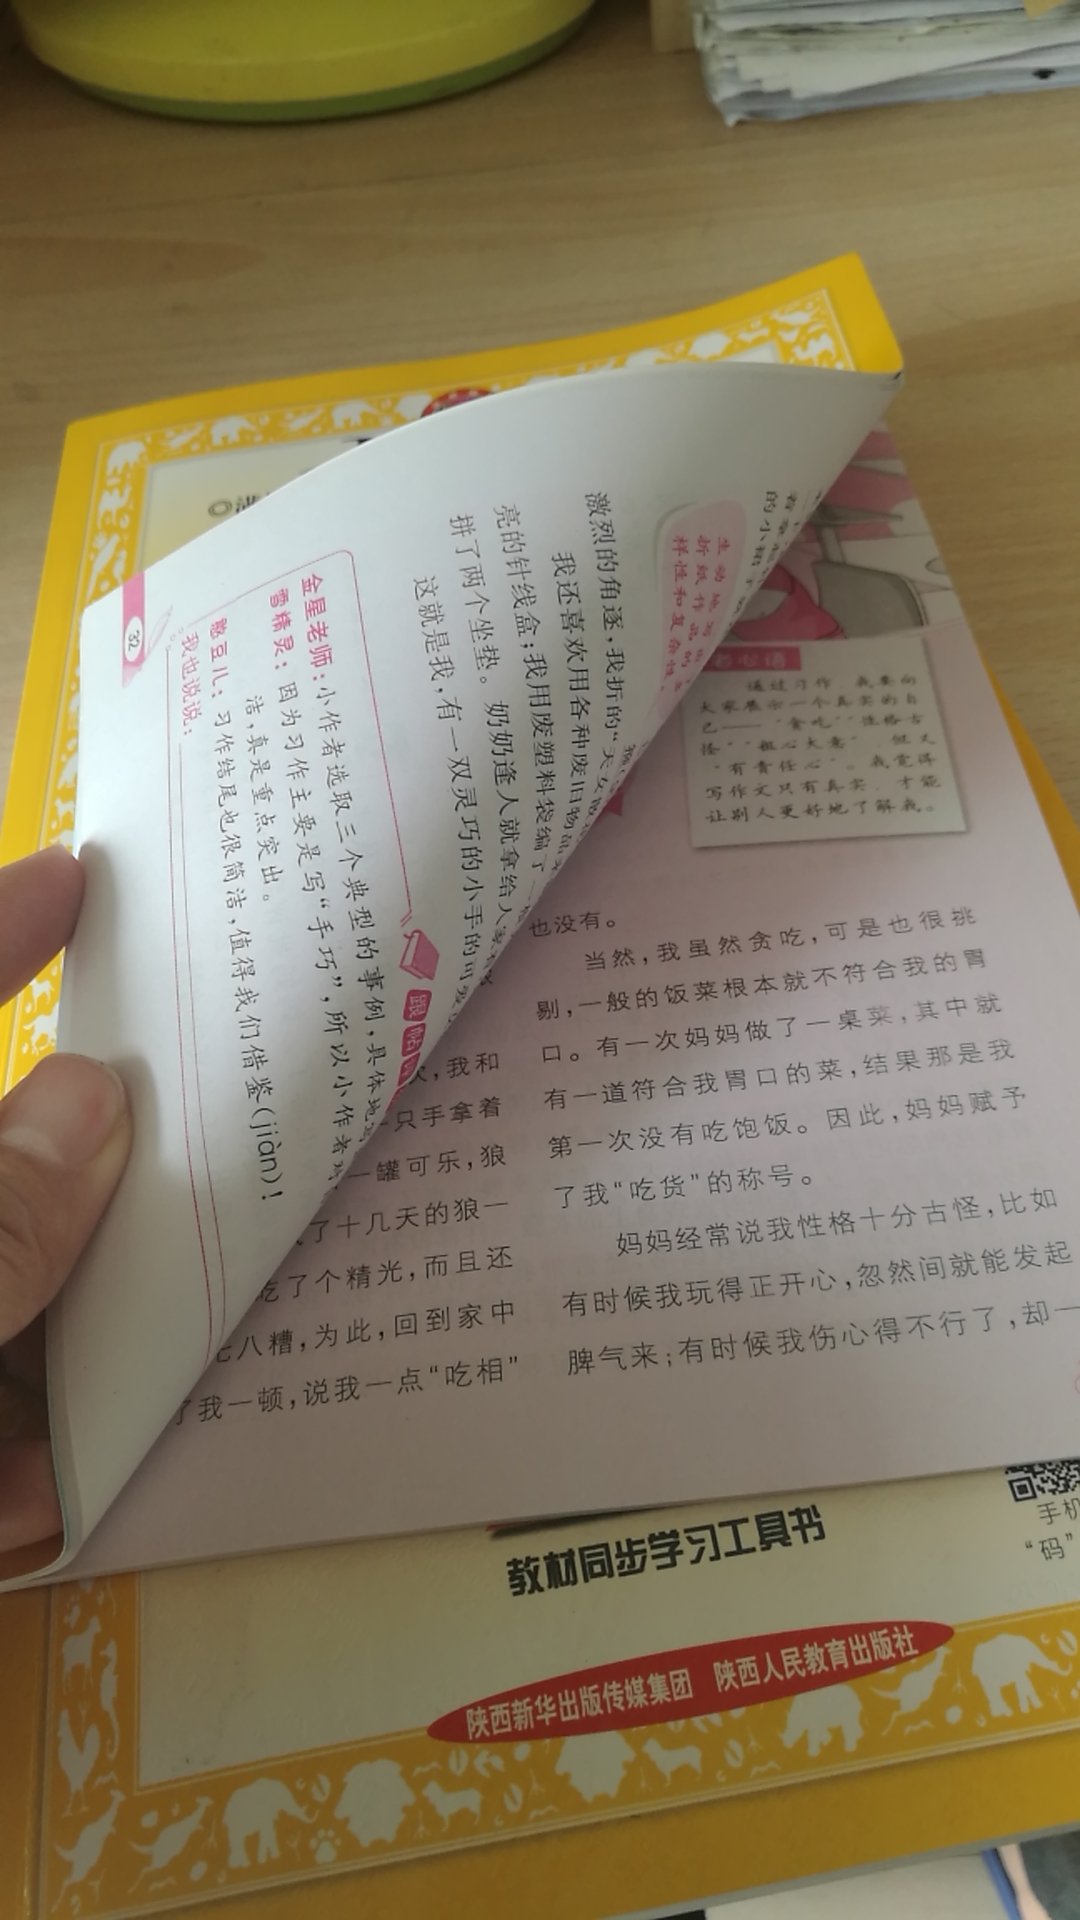 激烈的角逐，我折的“天女
我还喜欢用各种废旧物品
亮的针线盒；我用废塑料袋编了一
拼了两个坐垫。奶奶逢人就拿给人
这就是我，有一双灵巧的小手的可爱
生动地写出
折纸作品的
样性和复杂性
的小
跟帖
金星老师：小作者选取三个典型的事例，具体地
雪精灵：因为习作主要是写“手巧”，所以小作者
洁，真是重点突出。
憨豆儿：习作结尾也很简洁，值得我们借鉴(jiàn)！
我也说说：
32
心语
通过习作，我要向
大家展示一个真实的自
己——“贪吃”“性格古
怪”“粗心大意”，但又
“有责任心”。我觉得
写作文只有真实，才能
让别人更好地了解我。
次，我和
只手拿着
一罐可乐，狼
了十几天的狼一
吃了个精光，而且还
七八糟，为此，回到家中
了我一顿，说我一点“吃相”
也没有。
当然，我虽然贪吃，可是也很挑
剔，一般的饭菜根本就不符合我的胃
口。有一次妈妈做了一桌菜，其中就
有一道符合我胃口的菜，结果那是我
第一次没有吃饱饭。因此，妈妈赋予
了我“吃货”的称号。
妈妈经常说我性格十分古怪，比如
有时候我玩得正开心，忽然间就能发起
脾气来；有时候我伤心得不行了，却一
教材同步学习工具书
手机
“码”
陕西新华出版传媒集团 陕西人民教育出版社